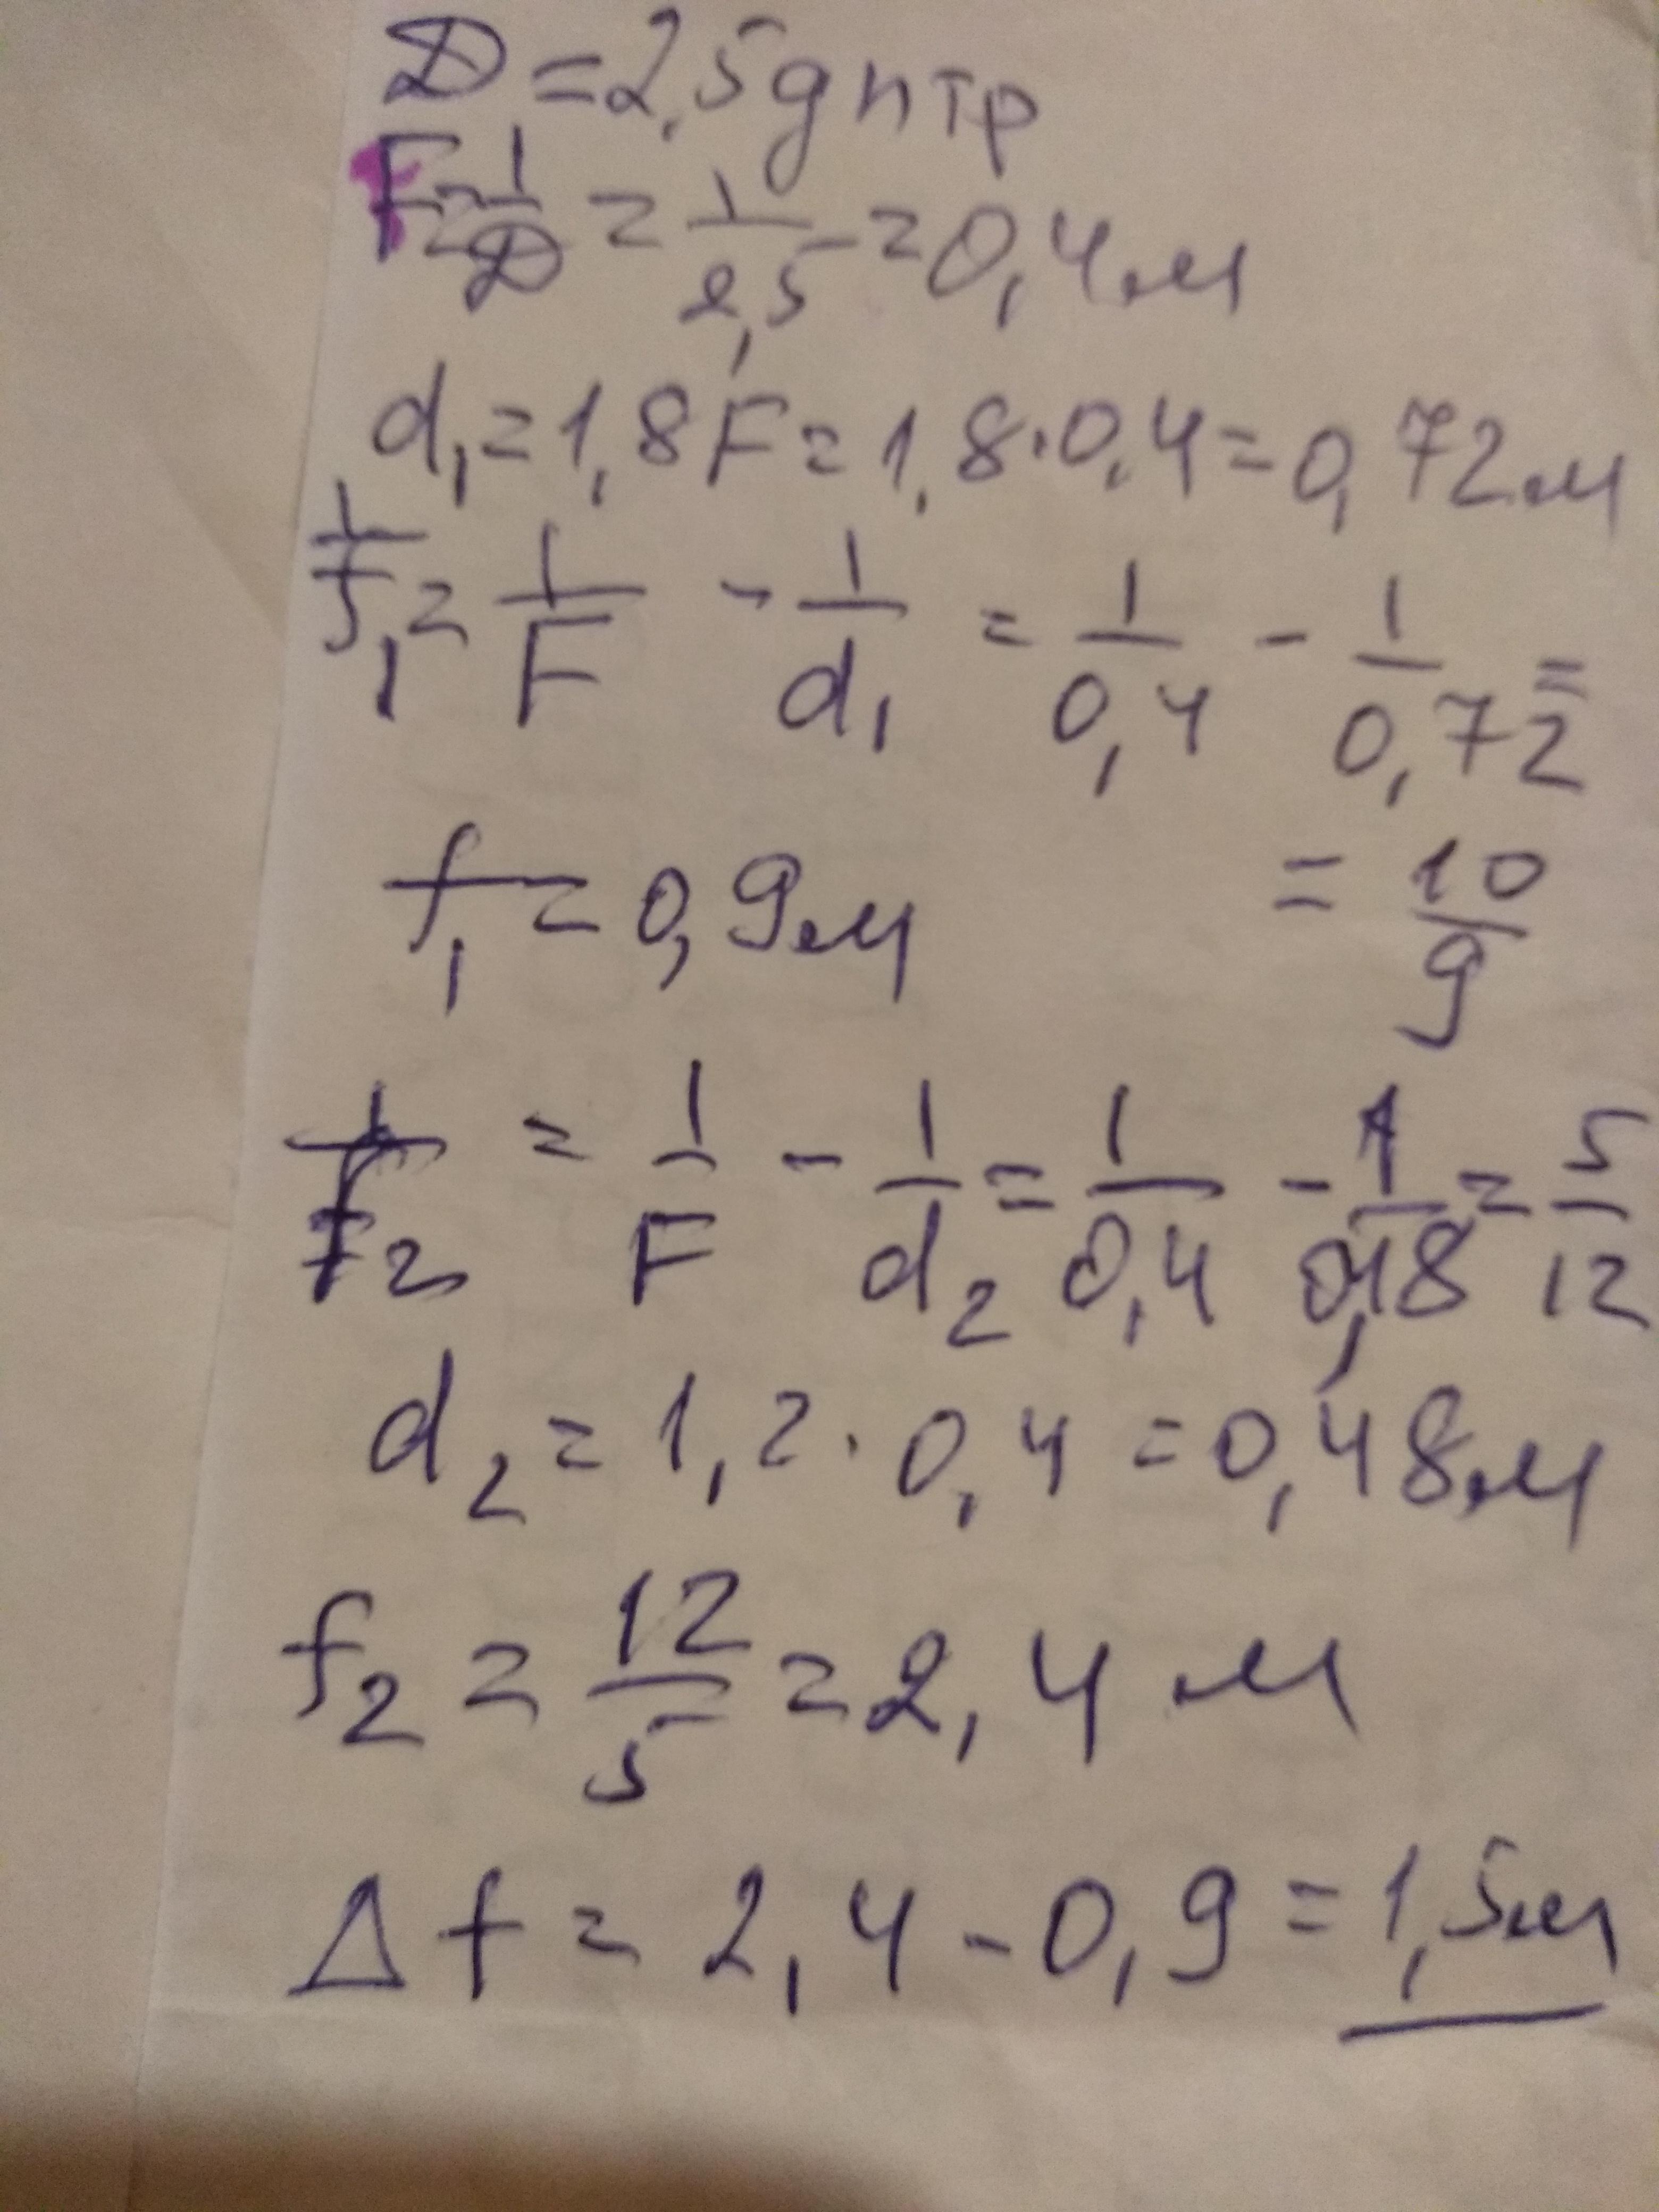 D = 2,5 дптр
F = 1/D = 1/2,5 = 0,4 м
d₁ = 1,8F = 1,8·0,4 = 0,72 м
1/f₁ = 1/F - 1/d₁ = 1/0,4 - 1/0,72 =
f₁ = 0,9 м = 10/9
1/f₂ = 1/F - 1/d₂ = 1/0,4 - 1/0,48 = 5/12
d₂ = 1,2·0,4 = 0,48 м
f₂ = 12/5 = 2,4 м
Δf = 2,4 - 0,9 = 1,5 м